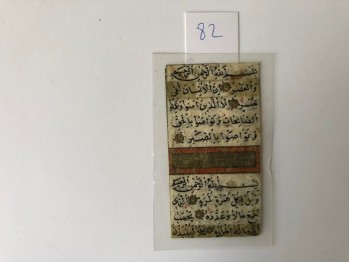 82
بسم الله الرحمن الرحيم
والعصر ان الانسان لفي
خسر الا الذين امنوا وعملوا
الصالحات وتواصوا بالحق
وتواصوا بالصبر
بسم الله الرحمن الرحيم
ويل لكل همزة لمزة الذي
جمع مالا وعدده يحسب